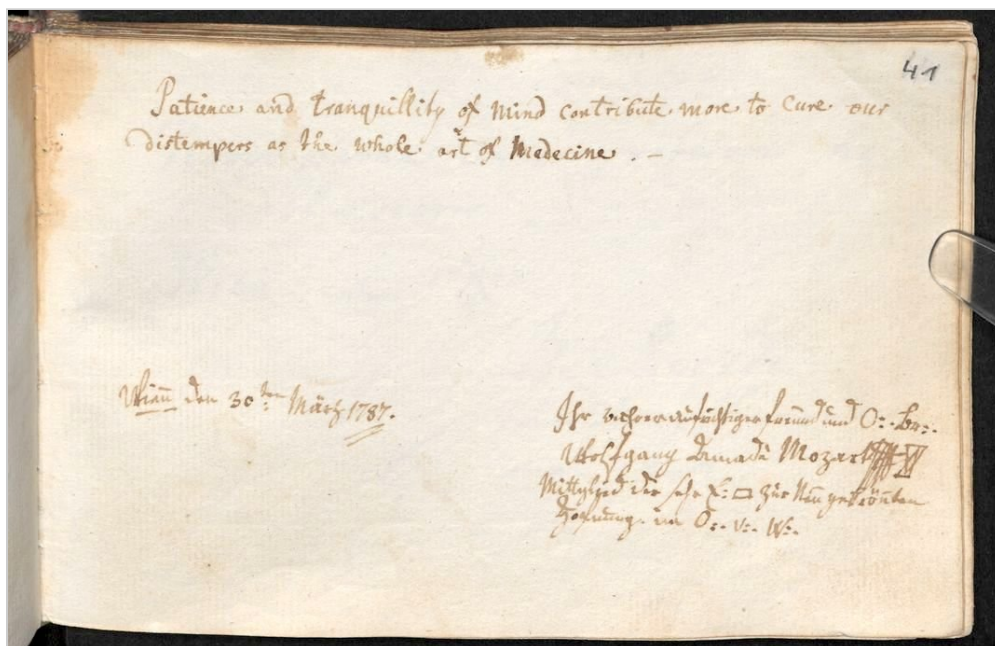 41
Patience and tranquillity of Mind contribute more to Cure our
distempers as the whole art of Medecine . –
Wien̅ den 30ten März 1787.
Ihr wahrer aufrichtiger freund und O:. Br:.
Wolfgang Amadè Mozart
Mitglied der s: E: □ zur Neugekrönten
Hofnung im O:. v:. W:.